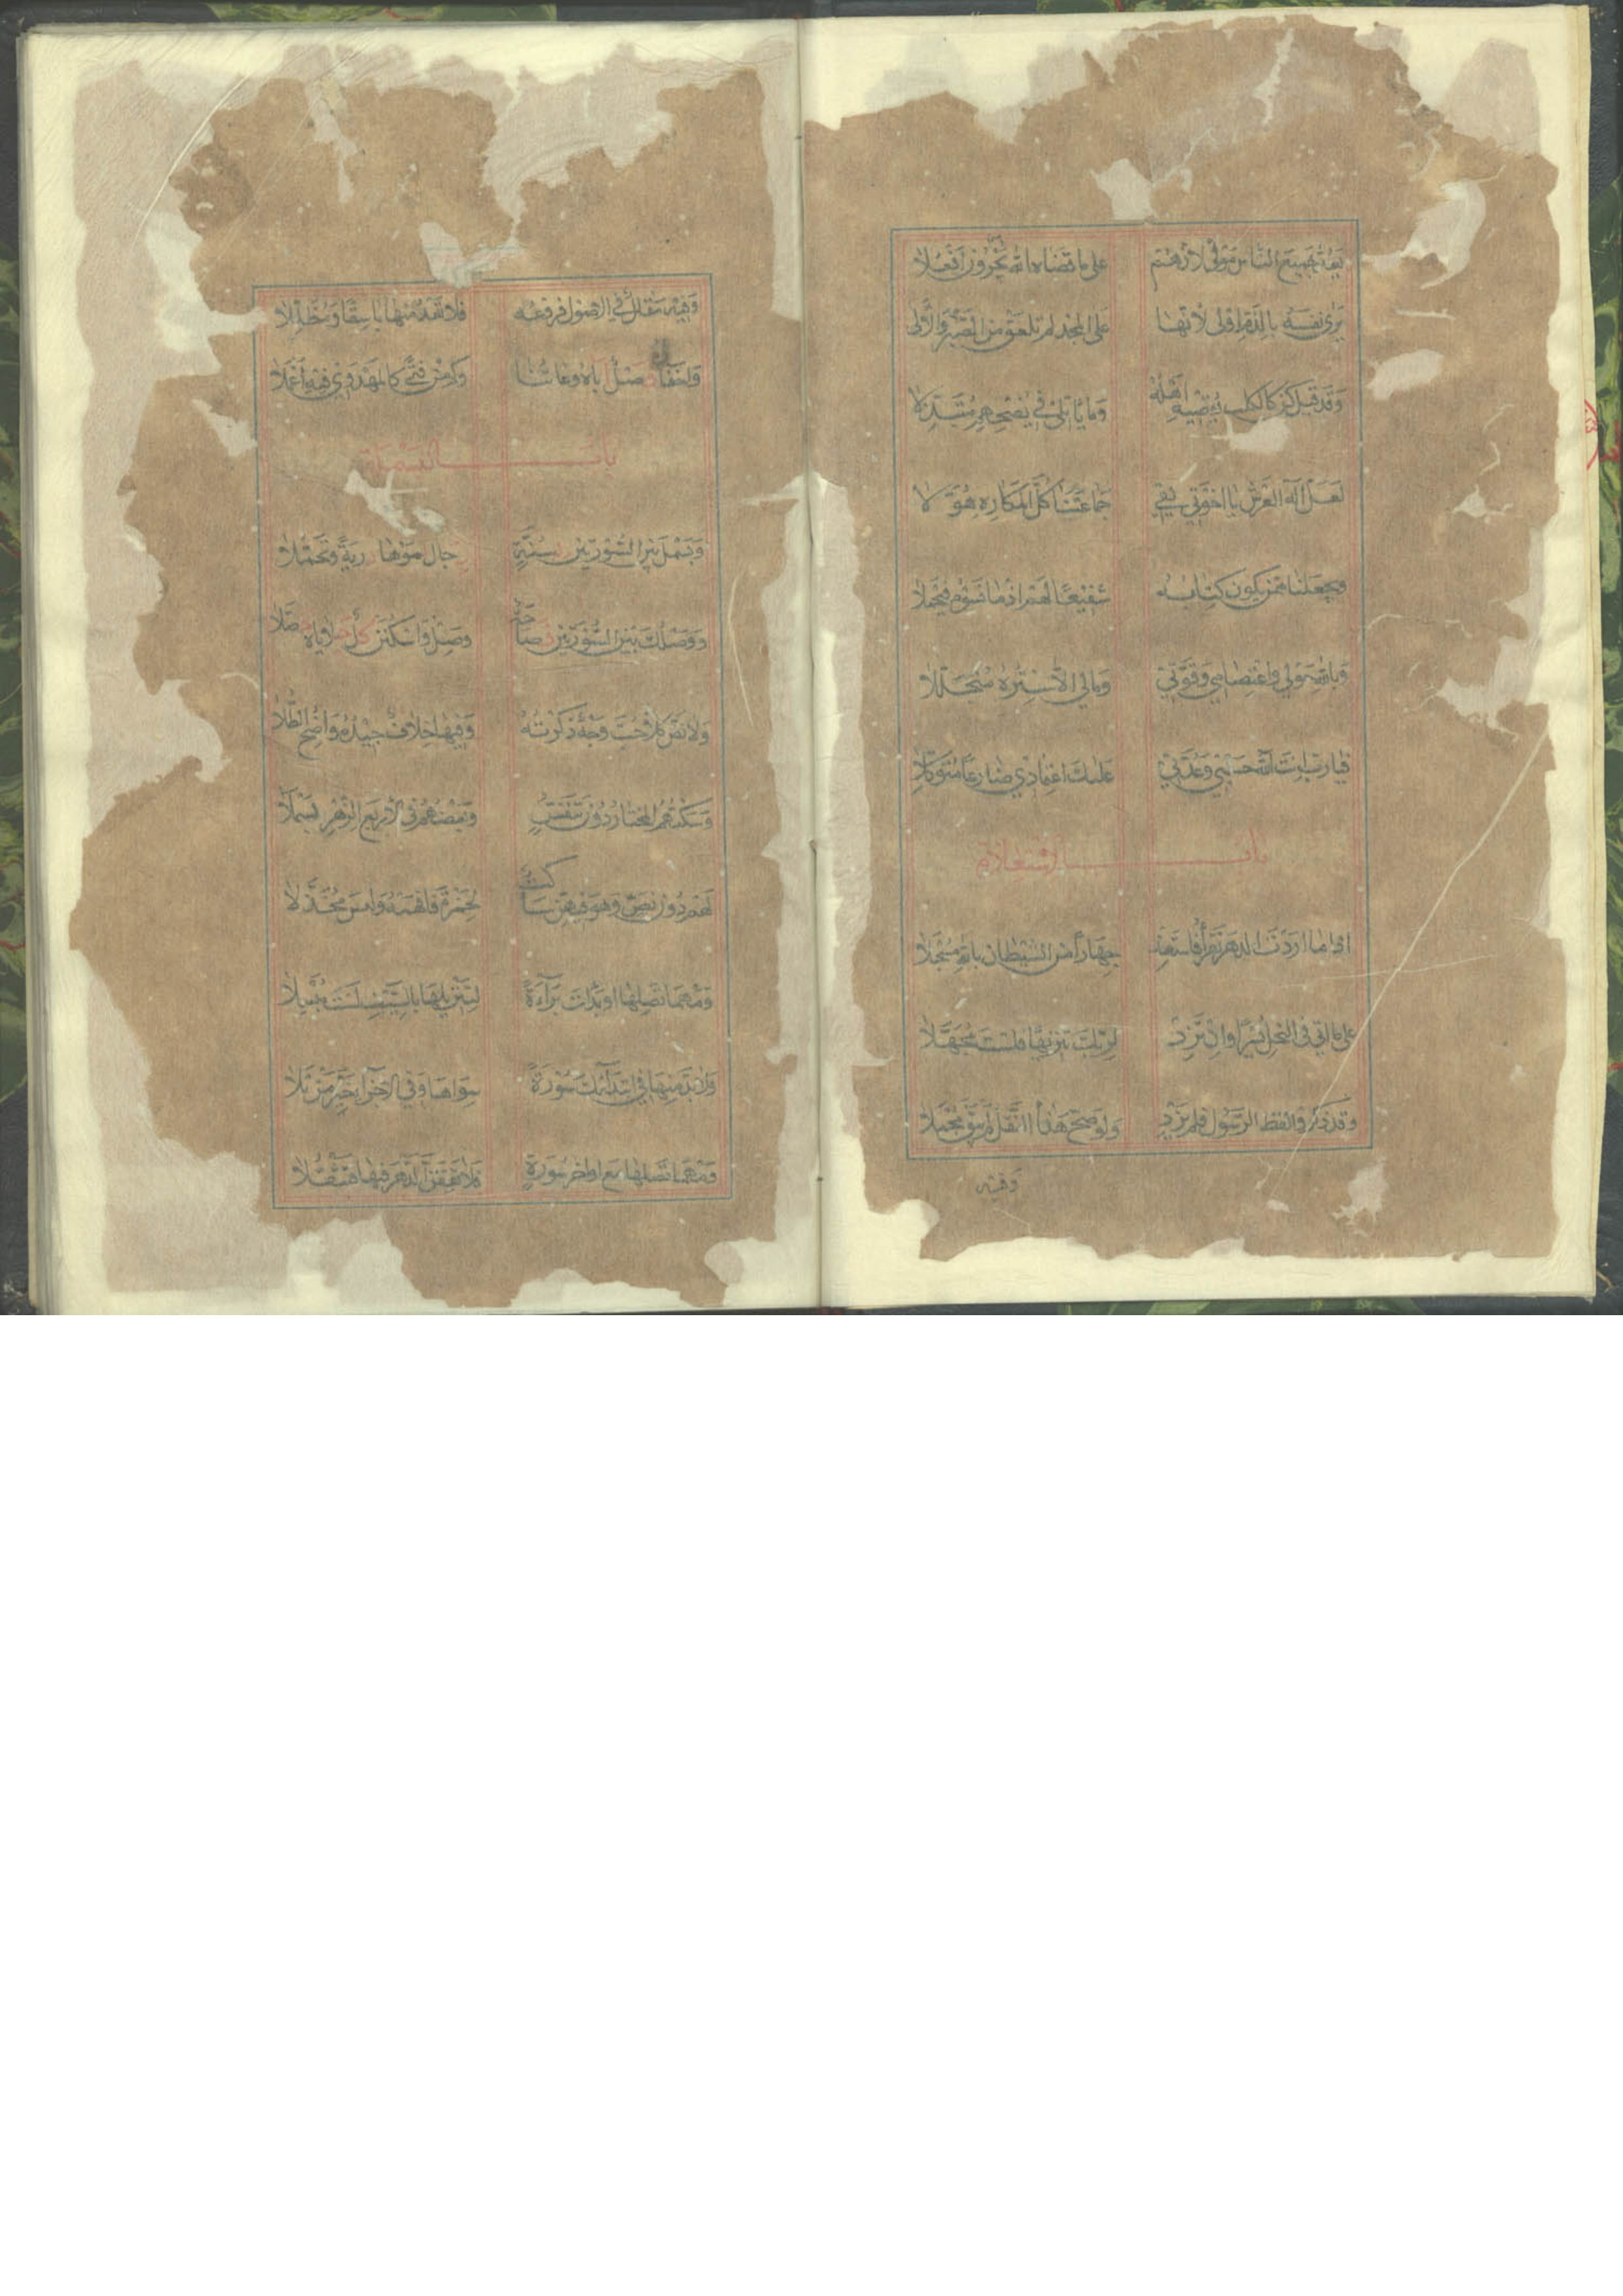 يعد جميع الناس مولى لانهم على ما قضاه الله يجرون افعلا
يرى نفسه بالذم اولى لانها على المجد لم تلعق من الصبر والالى
وقد قيل كن كالكلب يقصيه اهله وما ياتلى في نصحهم متبذلا
لعل اله العرش يا اخوتي يقي جماعتنا كل المكاره هولا
ويجعلنا ممن يكون كتابه شفيعا لهم اذ ما نسوه فيمحلا
وبالله حولي واعتصامي وقوتي ومالي الا ستره متجللا
فيا رب انت الله حسبي وعدتي عليك اعتمادي ضارعا متوكلا
باب الاستعاذة
اذا ما اردت الدهر تقرأ فاستعذ جهارا من الشيطان بالله مسجلا
على ما اتى في النحل يسرا وان تزد لربك تنزيها فلست مجهلا
وقد ذكروا لفظ الرسول فلم يزد ولو صح هذا النقل لم يبق مجملا
وفيه
وفيه مقال في الاصول فروعه فلا تعد منها باسقا ومظللا
واخفاؤه فصل اباه وعاتنا وكم من فتى كالمهدوي فيه اعملا
باب البسملة
وبسمل بين السورتين بسنة رجال نموها درية وتحملا
ووصلك بين السورتين فصاحة وصل واسكتن كل جلاياه حصلا
ولا نص كلا حب وجه ذكرته وفيها خلاف جيده واضح الطلا
وسكتهم المختار دون تنفس وبعضهم في الاربع الزهر بسملا
لهم دون نص وهو فيهن ساكت لحمزة فافهمه وليس مخذلا
ومهما تصلها او بدات براءة لتنزيلها بالسيف لست مبسملا
ولا بد منها في ابتدائك سورة سواها وفي الاجزاء خير من تلا
ومهما تصلها مع اواخر سورة فلا تقفن الدهر فيها فتثقلا